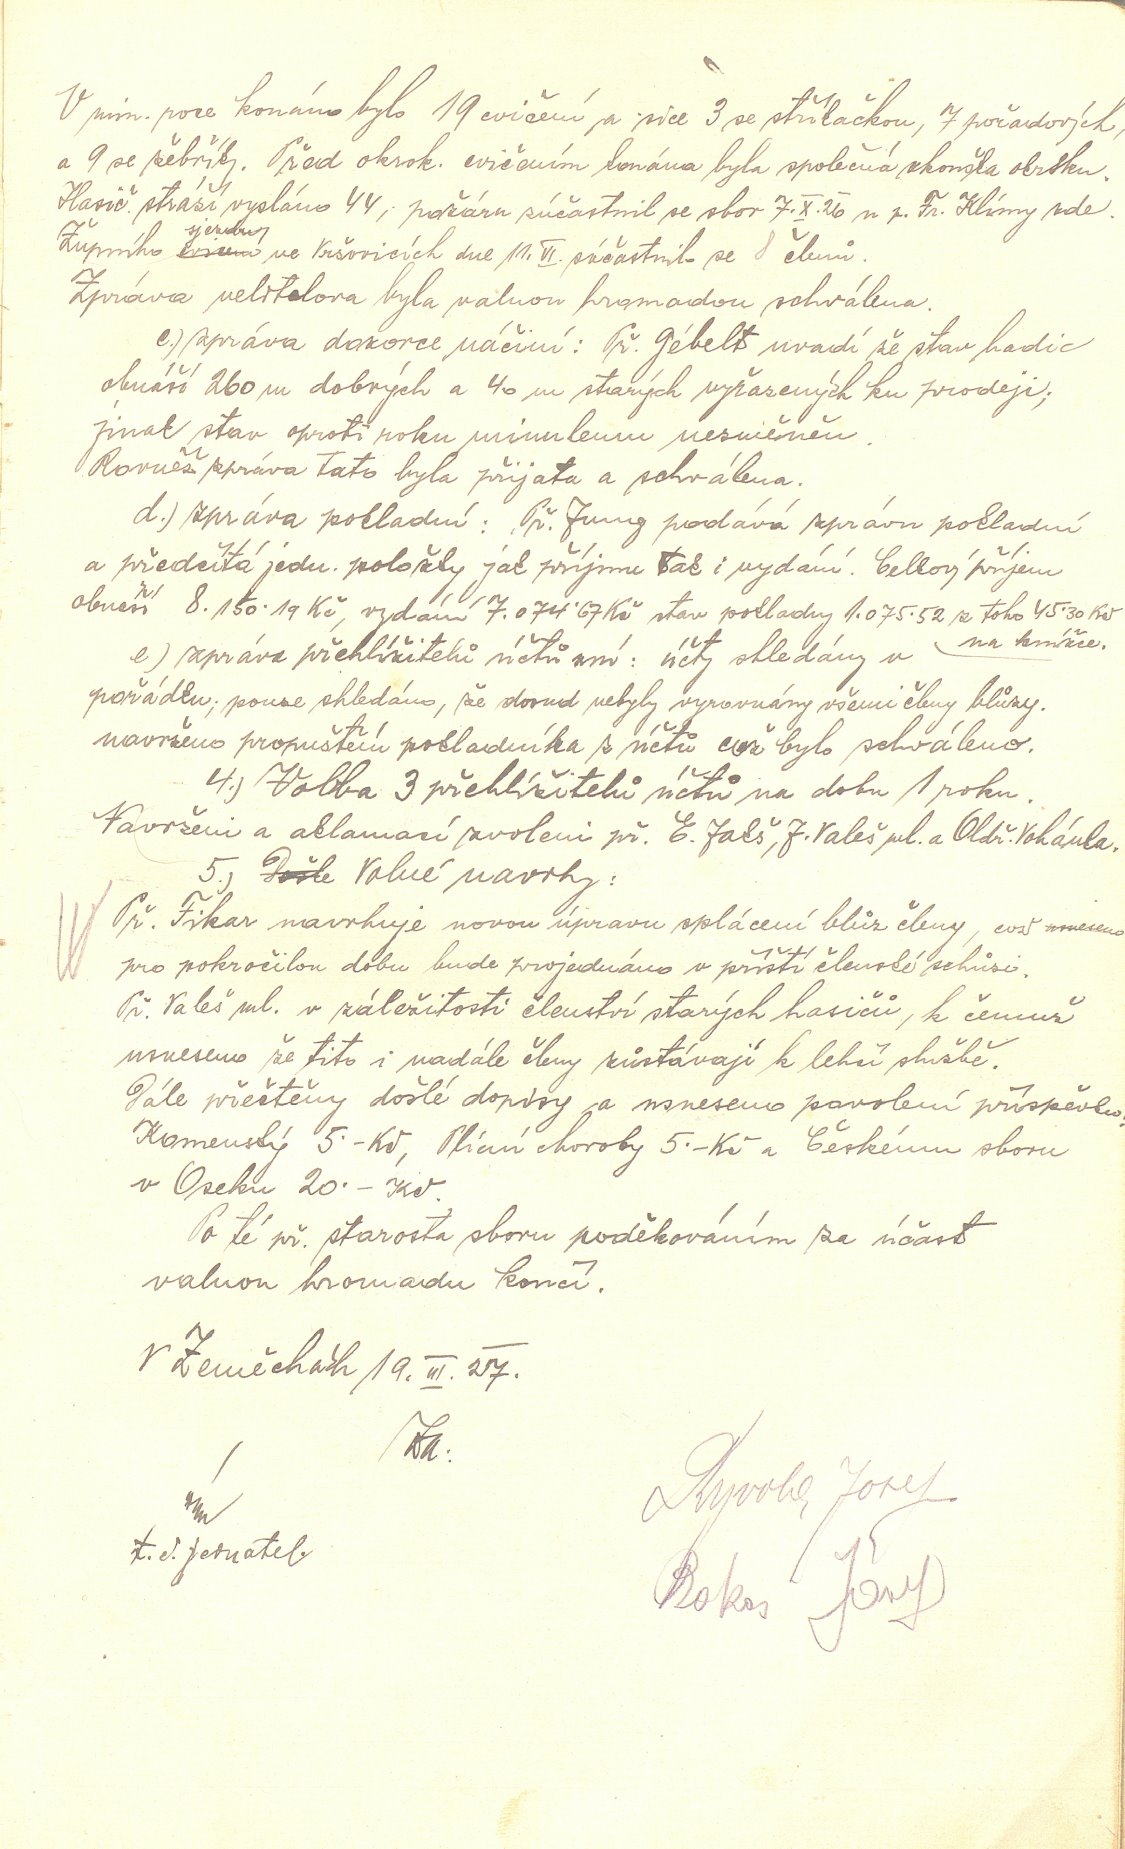 V min. roce konáno bylo 19 cvičení a sice 3 se stříkačkou, 7 pořadových,
a 9 se žebříky. Před okrsk. cvičením konána byla společná zkouška okrsku.
Hasič. stráží vysláno 44, požáru zúčastnil se sbor 7.X.26 u p. Fr. Klímy zde.
sjezdu
Župního cvičení ve Vršovicích dne 11. VI. súčastnilo se 8 členů.
Zpráva velitelova byla valnou hromadou schválena.
c.) zpráva dozorce náčiní: Př. Gébelt uvadí že stav hadic
obnáší 260 m dobrých a 40 m starých vyřazených ku prodeji;
jinak stav oproti roku minulemu nezměněn.
Rovněž zpráva tato byla přijata a schválena.
d.) zpráva pokladní: Př. Jung podává zprávu pokladní
a předčítá jedn. položky jak příjmu tak i vydání. Celkový příjem
obnáší 8.150.19 Kč, vydání 7.074.67 Kč stav pokladny 1.075.52 z toho 45.30 Kč
na knížce.
e) zpráva přehlížitelů účtů zní: účty shledány v
pořádku, pouze shledáno, že dosud nebyly vyrovnány všemi členy blůzy.
navrženo propuštění pokladníka z účtů což bylo schváleno.
4.) Volba 3 přehlížitelů účtů na dobu 1 roku.
Navrženi a aklamací zvoleni př. Č. Jakš, J. Valeš ml. a Oldř. Vohánka.
5.) Došle Volné navrhy:
Př. Fikar navrhuje novou úpravu splácení blůz členy, což usneseno
pro pokročilou dobu bude projednáno v příští členské schůzi.
Př. Valeš ml. v záležitosti členství starých hasičů, k čemuž
usneseno že tito i nadále členy zůstávají k lehčí službě.
Dále přečteny došlé dopisy a usneseno povolení příspěvku:
Komenský 5.- Kč, Plicní choroby 5.- Kč a Českému sboru
v Oseku 20.- Kč.
Po té př. starosta sboru poděkováním za účast
valnou hromadu končí.
V Zeměchách 19. III. 27.
Za:
t. č. jednatel.
Josef
Rokos Josef